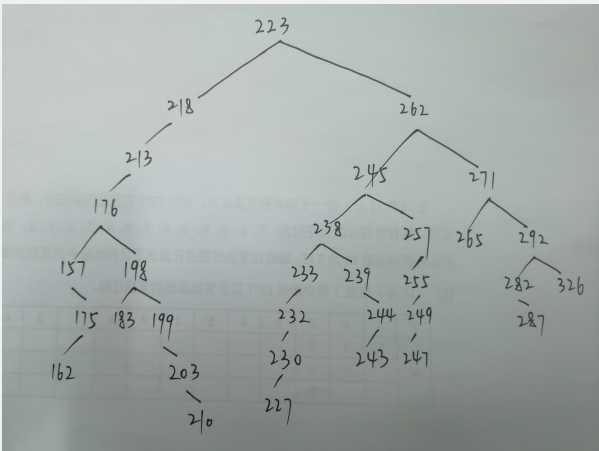 223
218 262
213 245 271
176 238 257 265 292
157 198 233 239 255 282 326
175 183 199 232 244 249 287
162 203 230 243 247
210 227